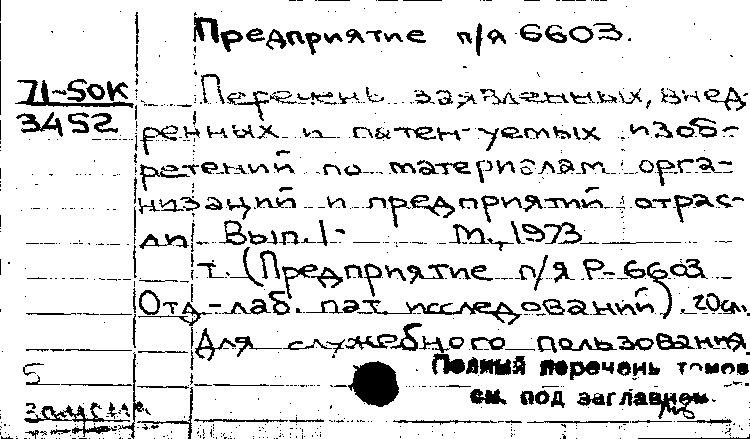 Предприятие п/я 6603.
71-50к
3452
Перечень заявленных, внед-
ренных и патентуемых изоб-
ретений по материалам орга-
низаций и предприятий отрас-
ли Вып. 1- М., 1973
т. (Предприятие п/я Р-6603
Отд-лаб. пат. исследований). 20см.
Для служебного пользования
5
Полный перечень томов
см. под заглавием.